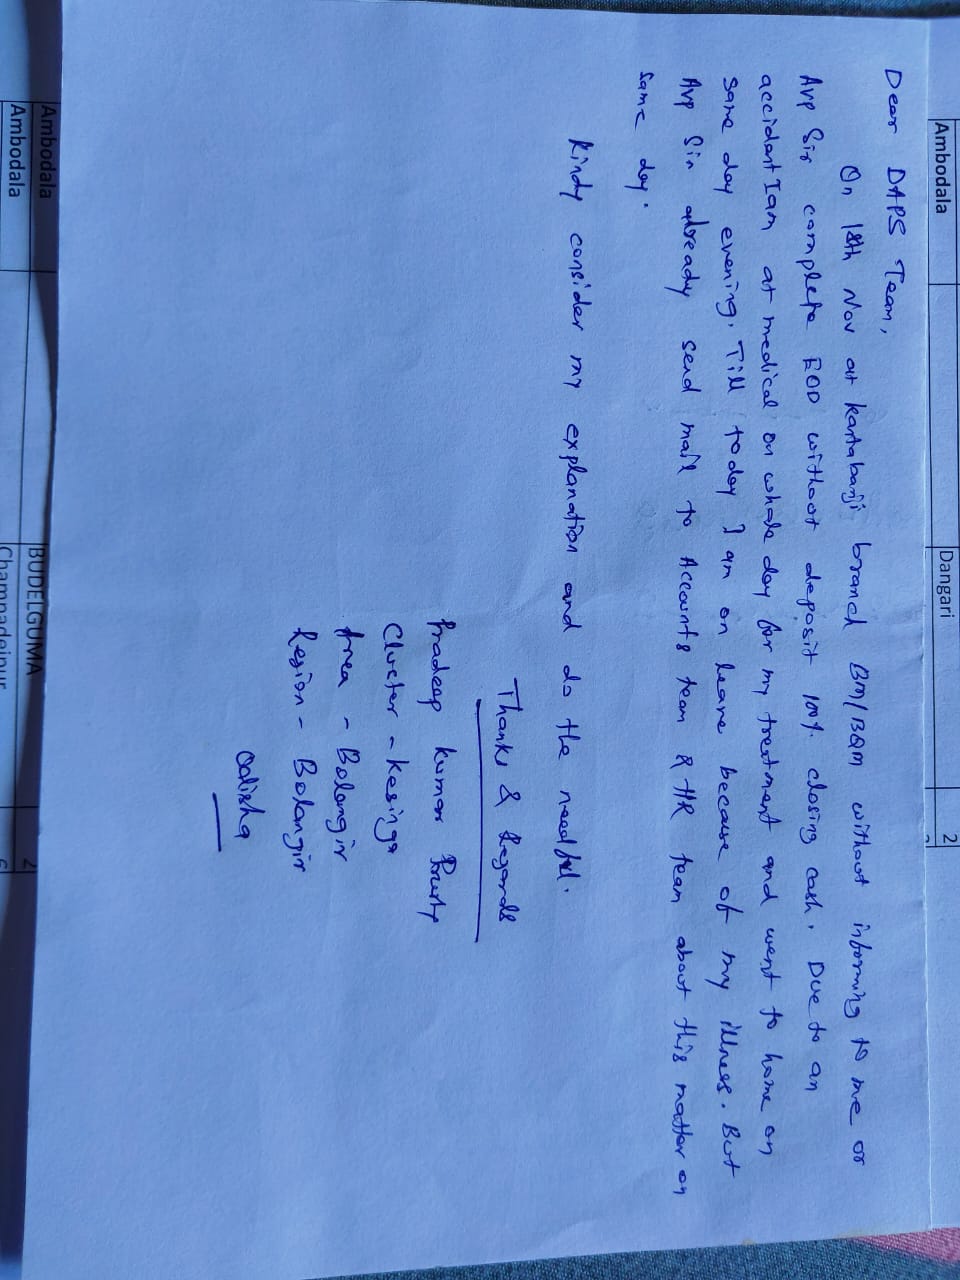 Ambodala
Dangari
2
Dear DAPS Team,
On 18th Nov at kantabanji branch BM/BQM without informing to me or
Avp Sir complete EOD without deposit 100% closing cash. Due to an
accidant I am at medical on whole day for my treatment and went to home on
same day evening. Till today I am on leave because of my illness. But
Avp Sir already send mail to Accounts team & HR team about this matter on
same day.
Kindy consider my explanation and do the needful.
Thanks & Regards
Pradeep kumar Prusty
Cluster - Kesinga
Area - Bolangir
Region - Bolangir
Odisha
Ambodala
BUDELGUMA
2
Ambodala
Champadeipur